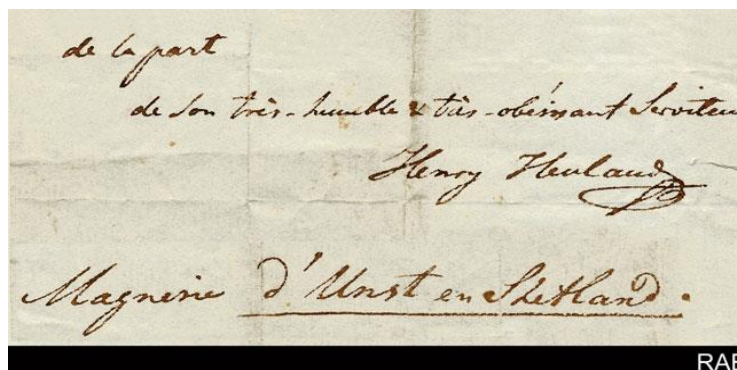 de la part
de Son très-humble & très-obéissant Serviteu
Henry Heuland
Magnésie d'Unst en Shetland.
RAE